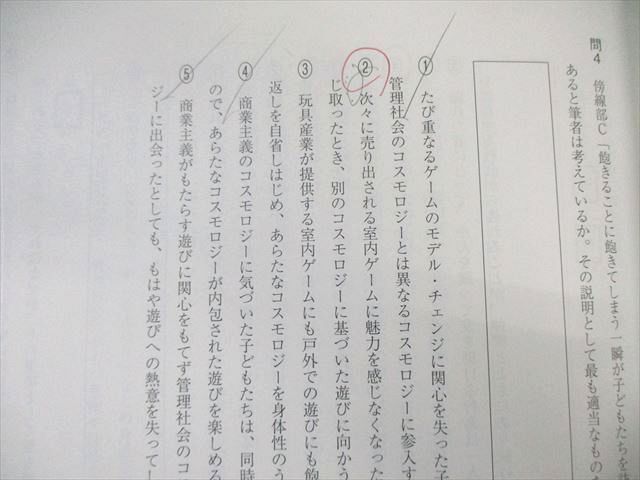 問4　傍線部C「飽きることに飽きてしまう一瞬が子どもたちを
あると筆者は考えているか。その説明として最も適当なものを
①　たび重なるゲームのモデル・チェンジに関心を失った子
管理社会のコスモロジーとは異なるコスモロジーに参入す
②　次々に売り出される室内ゲームに魅力を感じなくなった
じ取ったとき、別のコスモロジーに基づいた遊びに向かう
③　玩具産業が提供する室内ゲームにも戸外での遊びにも飽
返しを自省しはじめ、あらたなコスモロジーを身体性のう
④　商業主義のコスモロジーに気づいた子どもたちは、同時
ので、あらたなコスモロジーが内包された遊びを楽しめる
⑤　商業主義がもたらす遊びに関心をもてず管理社会のコス
ジーに出会ったとしても、もはや遊びへの熱意を失ってし